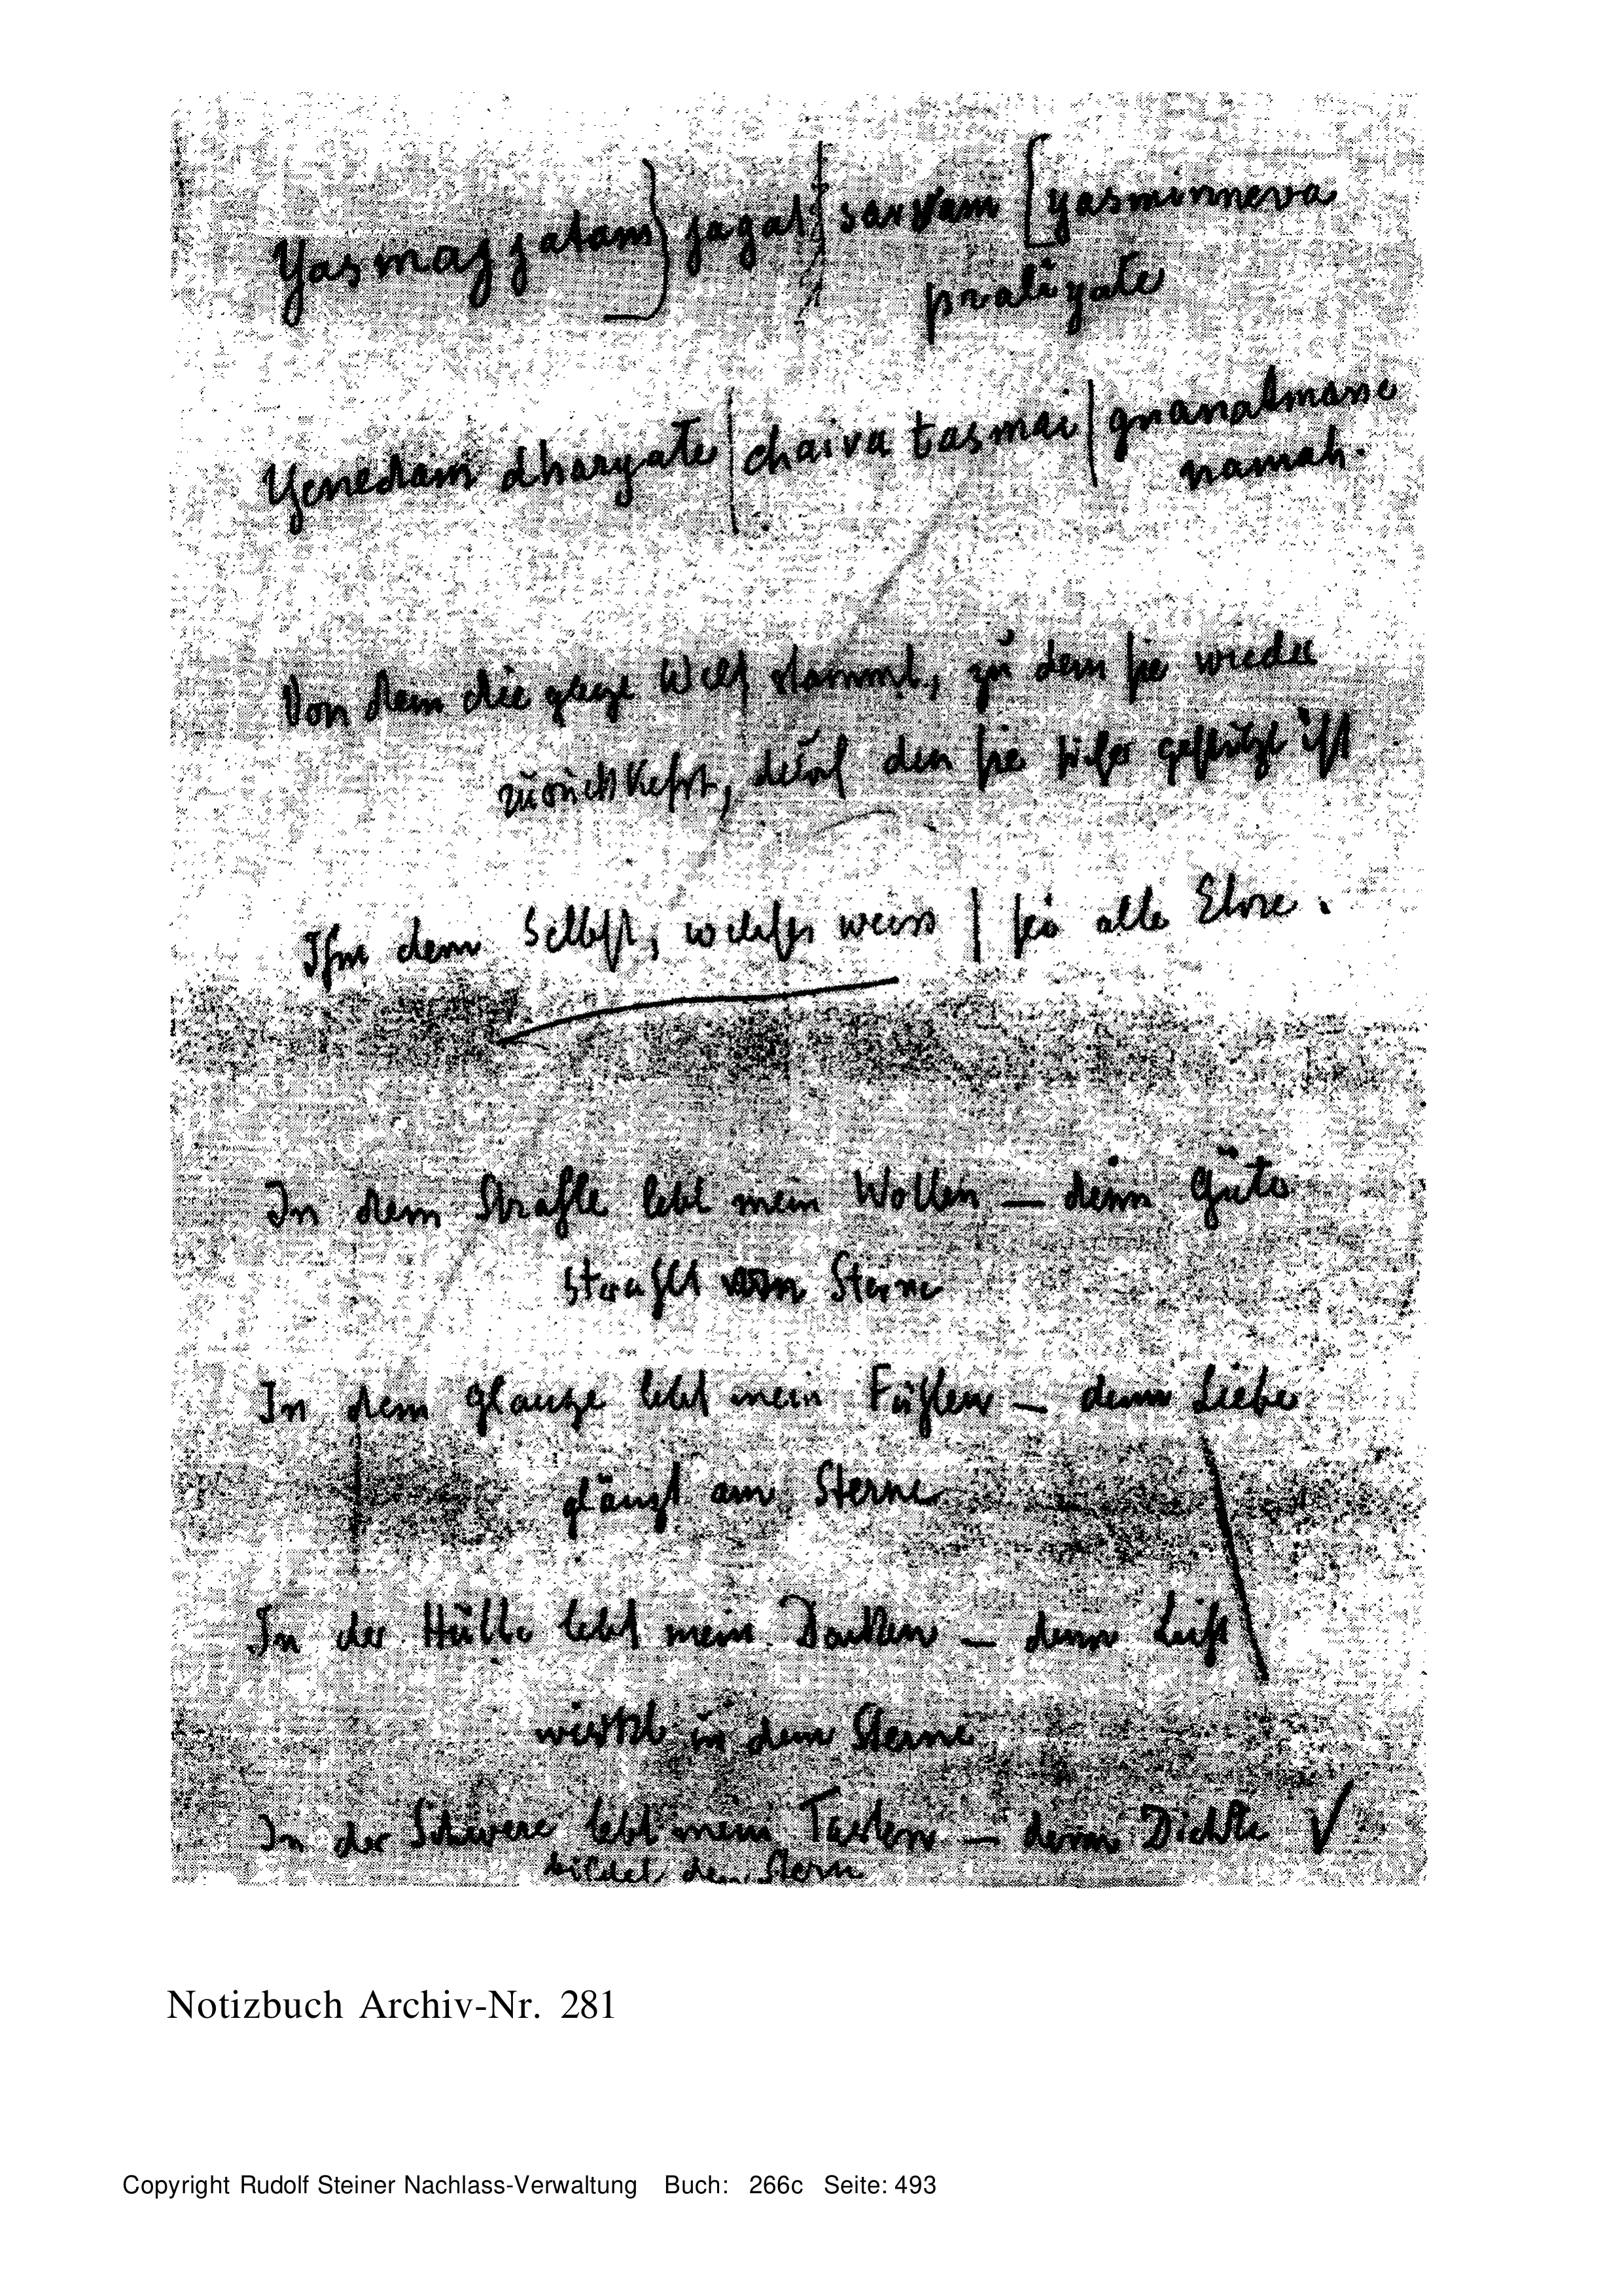 Yasmaj jatam] jagat | sarvam [yasminneva
praliyate
Yenedam dharyate | chaiva tasmai | gnanatmane
namah.
Von dem die ganze Welt stammt, zu dem sie wieder
zurückkehrt, durch den sie sicher gestützt ist
Ihm dem Selbst, welches weiss | sei alle Ehre.
In dem Strahle lebt mein Wollen — denn Güte
strahlt vom Sterne
In dem Glanze lebt mein Fühlen — denn Liebe
glänzt am Sterne
In der Hülle lebt mein Denken — denn Luft
wirkt in dem Sterne
In der Schwere lebt mein Tasten — denn Dichte
bildet den Stern
Notizbuch Archiv-Nr. 281
Copyright Rudolf Steiner Nachlass-Verwaltung Buch: 266c Seite: 493